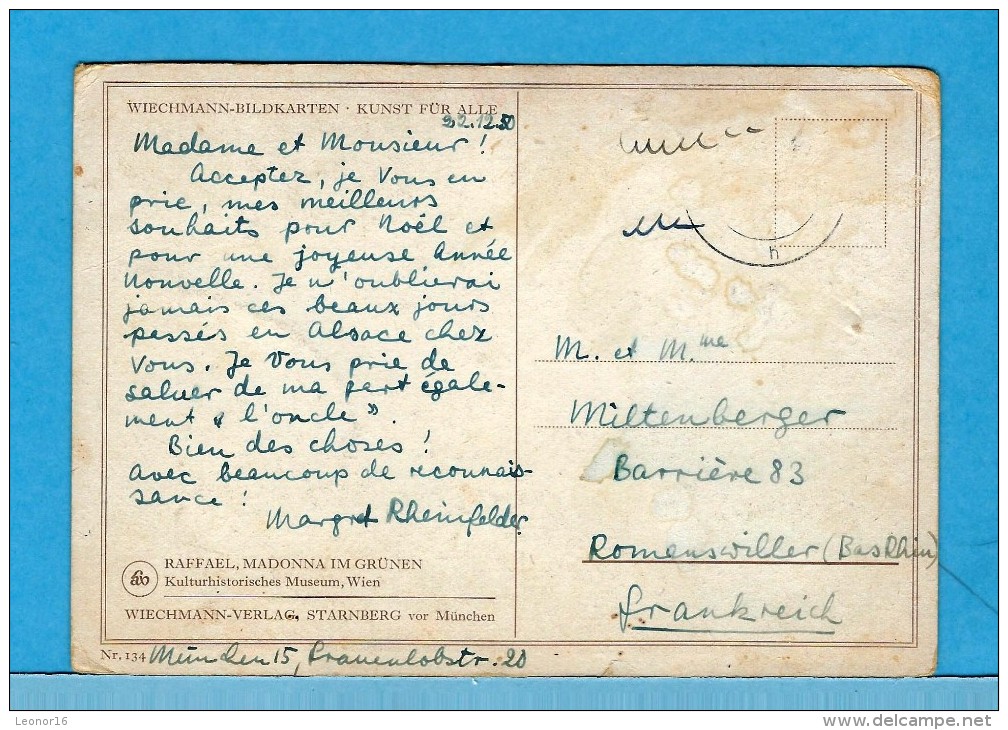 WIECHMANN-BILDKARTEN · KUNST FÜR ALLE
22.12.50
Madame et Monsieur !
Acceptez, je Vous en
prie, mes meilleurs
souhaits pour Noël et
pour une joyeuse Année
Nouvelle. Je n'oublierai
jamais ces beaux jours
passés en Alsace chez
Vous. Je Vous prie de
saluer de ma part égale-
ment « l'oncle ».
Bien des choses !
Avec beaucoup de reconnais-
sance !
Margret Rheinfelder
RAFFAEL, MADONNA IM GRÜNEN
Kulturhistorisches Museum, Wien
WIECHMANN-VERLAG, STARNBERG vor München
Nr. 134
München 15, Frauenlobstr. 20
h
M. et Mme
Miltenberger
Barrière 83
Romenswiller (Bas Rhin)
Frankreich
Leonor16
www.delcampe.net